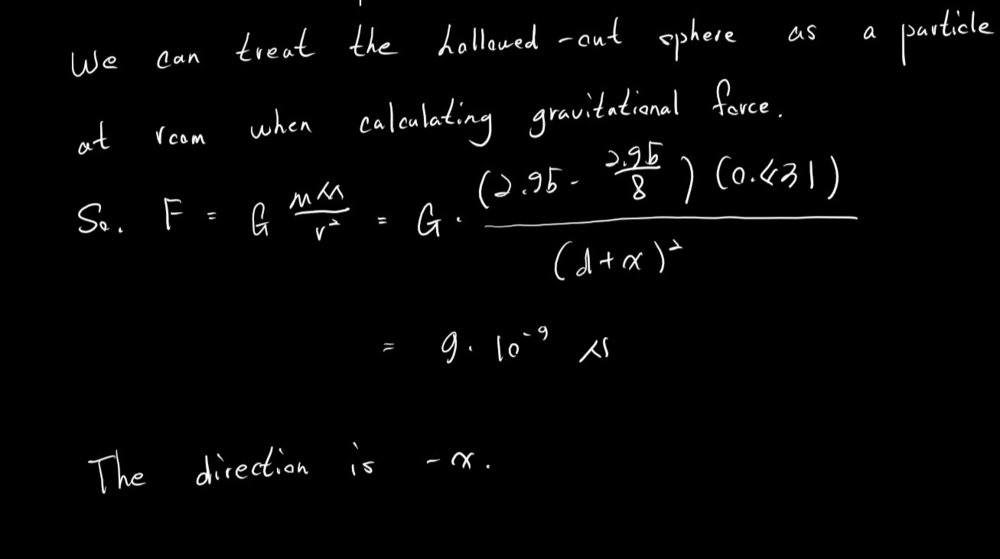 We can treat the hollowed-out sphere as a particle
at rcom when calculating gravitational force.
So. F = G mM/r² = G · (2.95 - 2.95/8) (0.431) / (d + x)²
= 9 · 10⁻⁹ N
The direction is -x.